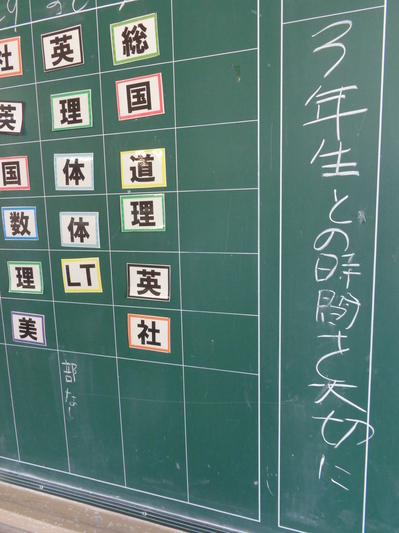 3年生との時間を大切に
総
国
道
理
英
社
英
理
体
体
LT
部なし
社
英
国
数
理
美